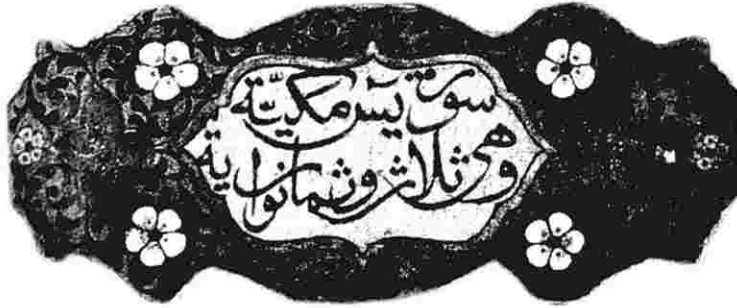 سورة يس مكيّة
وهي ثلاث وثمانون اية